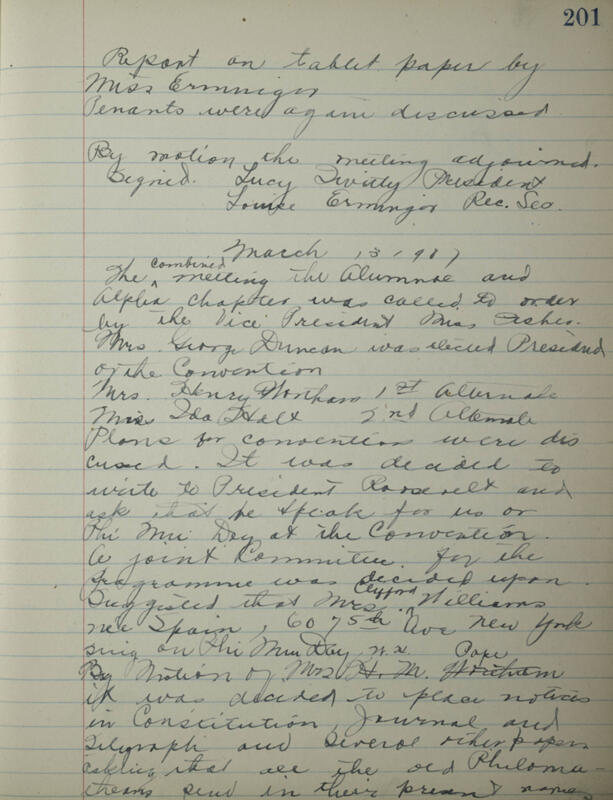 201
Report on tablet paper by
Miss Erminger
Penants were again discussed.
By motion the meeting adjourned.
Signed. Lucy President
Louise Erminger Rec. Sec.
March 13, 1917
The combined meeting the Alumnae and
Alpha chapter was called to order
by the Vice President Miss Asher.
Mrs. George Duncan was elected President
of the Convention
Mrs. Henry Wortham 1st Alternate
Miss Ida Holt 2nd Alternate
Plans for convention were dis
cussed. It was decided to
write to President Roosevelt and
ask that he speak for us on
Phi Mu Day at the Convention.
A joint Committee for the
programme was decided upon.
Suggested that Mrs. Clifford Williams
nee Spain, 60 75th Ave New York
sing on Phi Mu Day
By Motion of Mrs H. M. Wortham Pope
it was decided to place notices
in Constitution, Journal and
Telegraph and several other papers
asking that all the old Philoma-
theans send in their present names